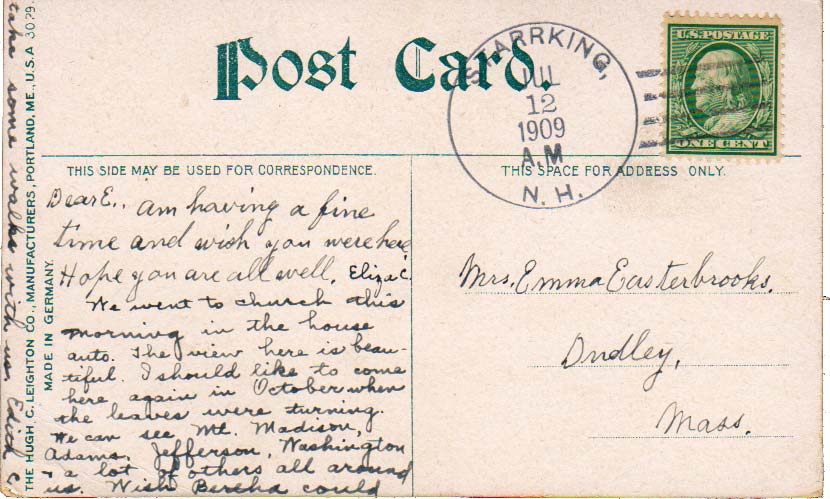 Post Card.
STARRKING,
JUL
12
1909
A.M
N. H.
U.S. POSTAGE
ONE CENT
THIS SIDE MAY BE USED FOR CORRESPONDENCE.
THIS SPACE FOR ADDRESS ONLY.
Dear E., am having a fine
time and wish you were here
Hope you are all well. Eliza C.
We went to church this
morning in the house
auto. The view here is beau-
tiful. I should like to come
here again in October when
the leaves were turning.
We can see Mt. Madison,
Adams, Jefferson, Washington
+ a lot of others all around
us. Wish Bertha could
take some walks with us. Edith C
Mrs. Emma Easterbrooks.
Dudley,
Mass.
THE HUGH C. LEIGHTON CO., MANUFACTURERS, PORTLAND, ME., U.S.A 3029.
MADE IN GERMANY.